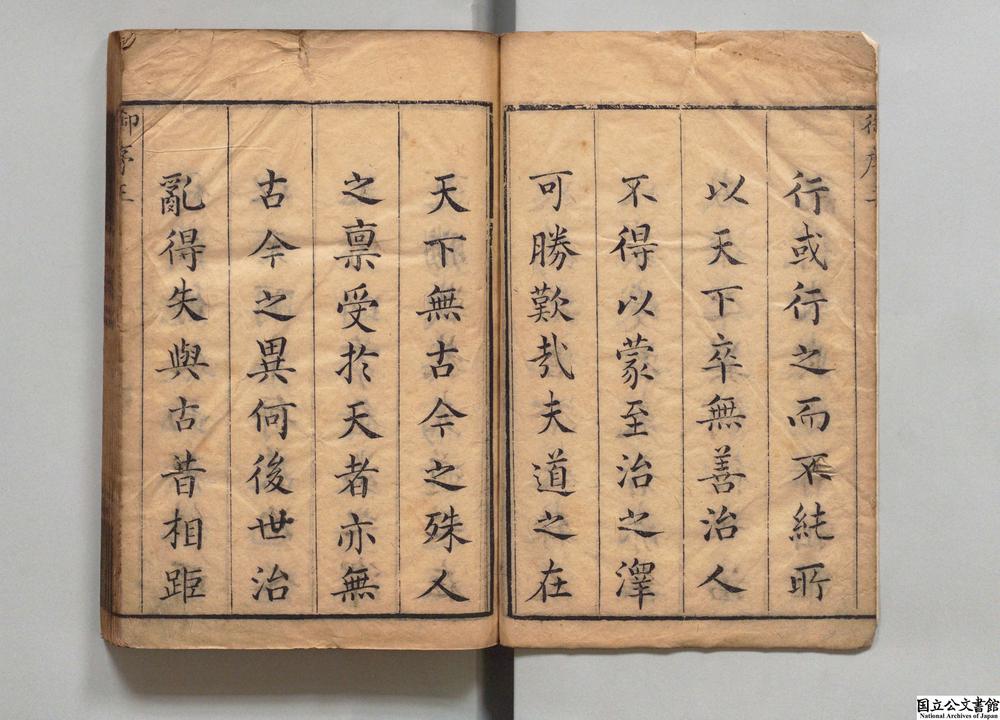 行或行之而不純所
以天下卒無善治人
不得以蒙至治之澤
可勝歎㢤夫道之在
天下無古今之殊人
之禀受於天者亦無
古今之異何後世治
亂得失與古昔相距
御序
国立公文書館
National Archives of Japan